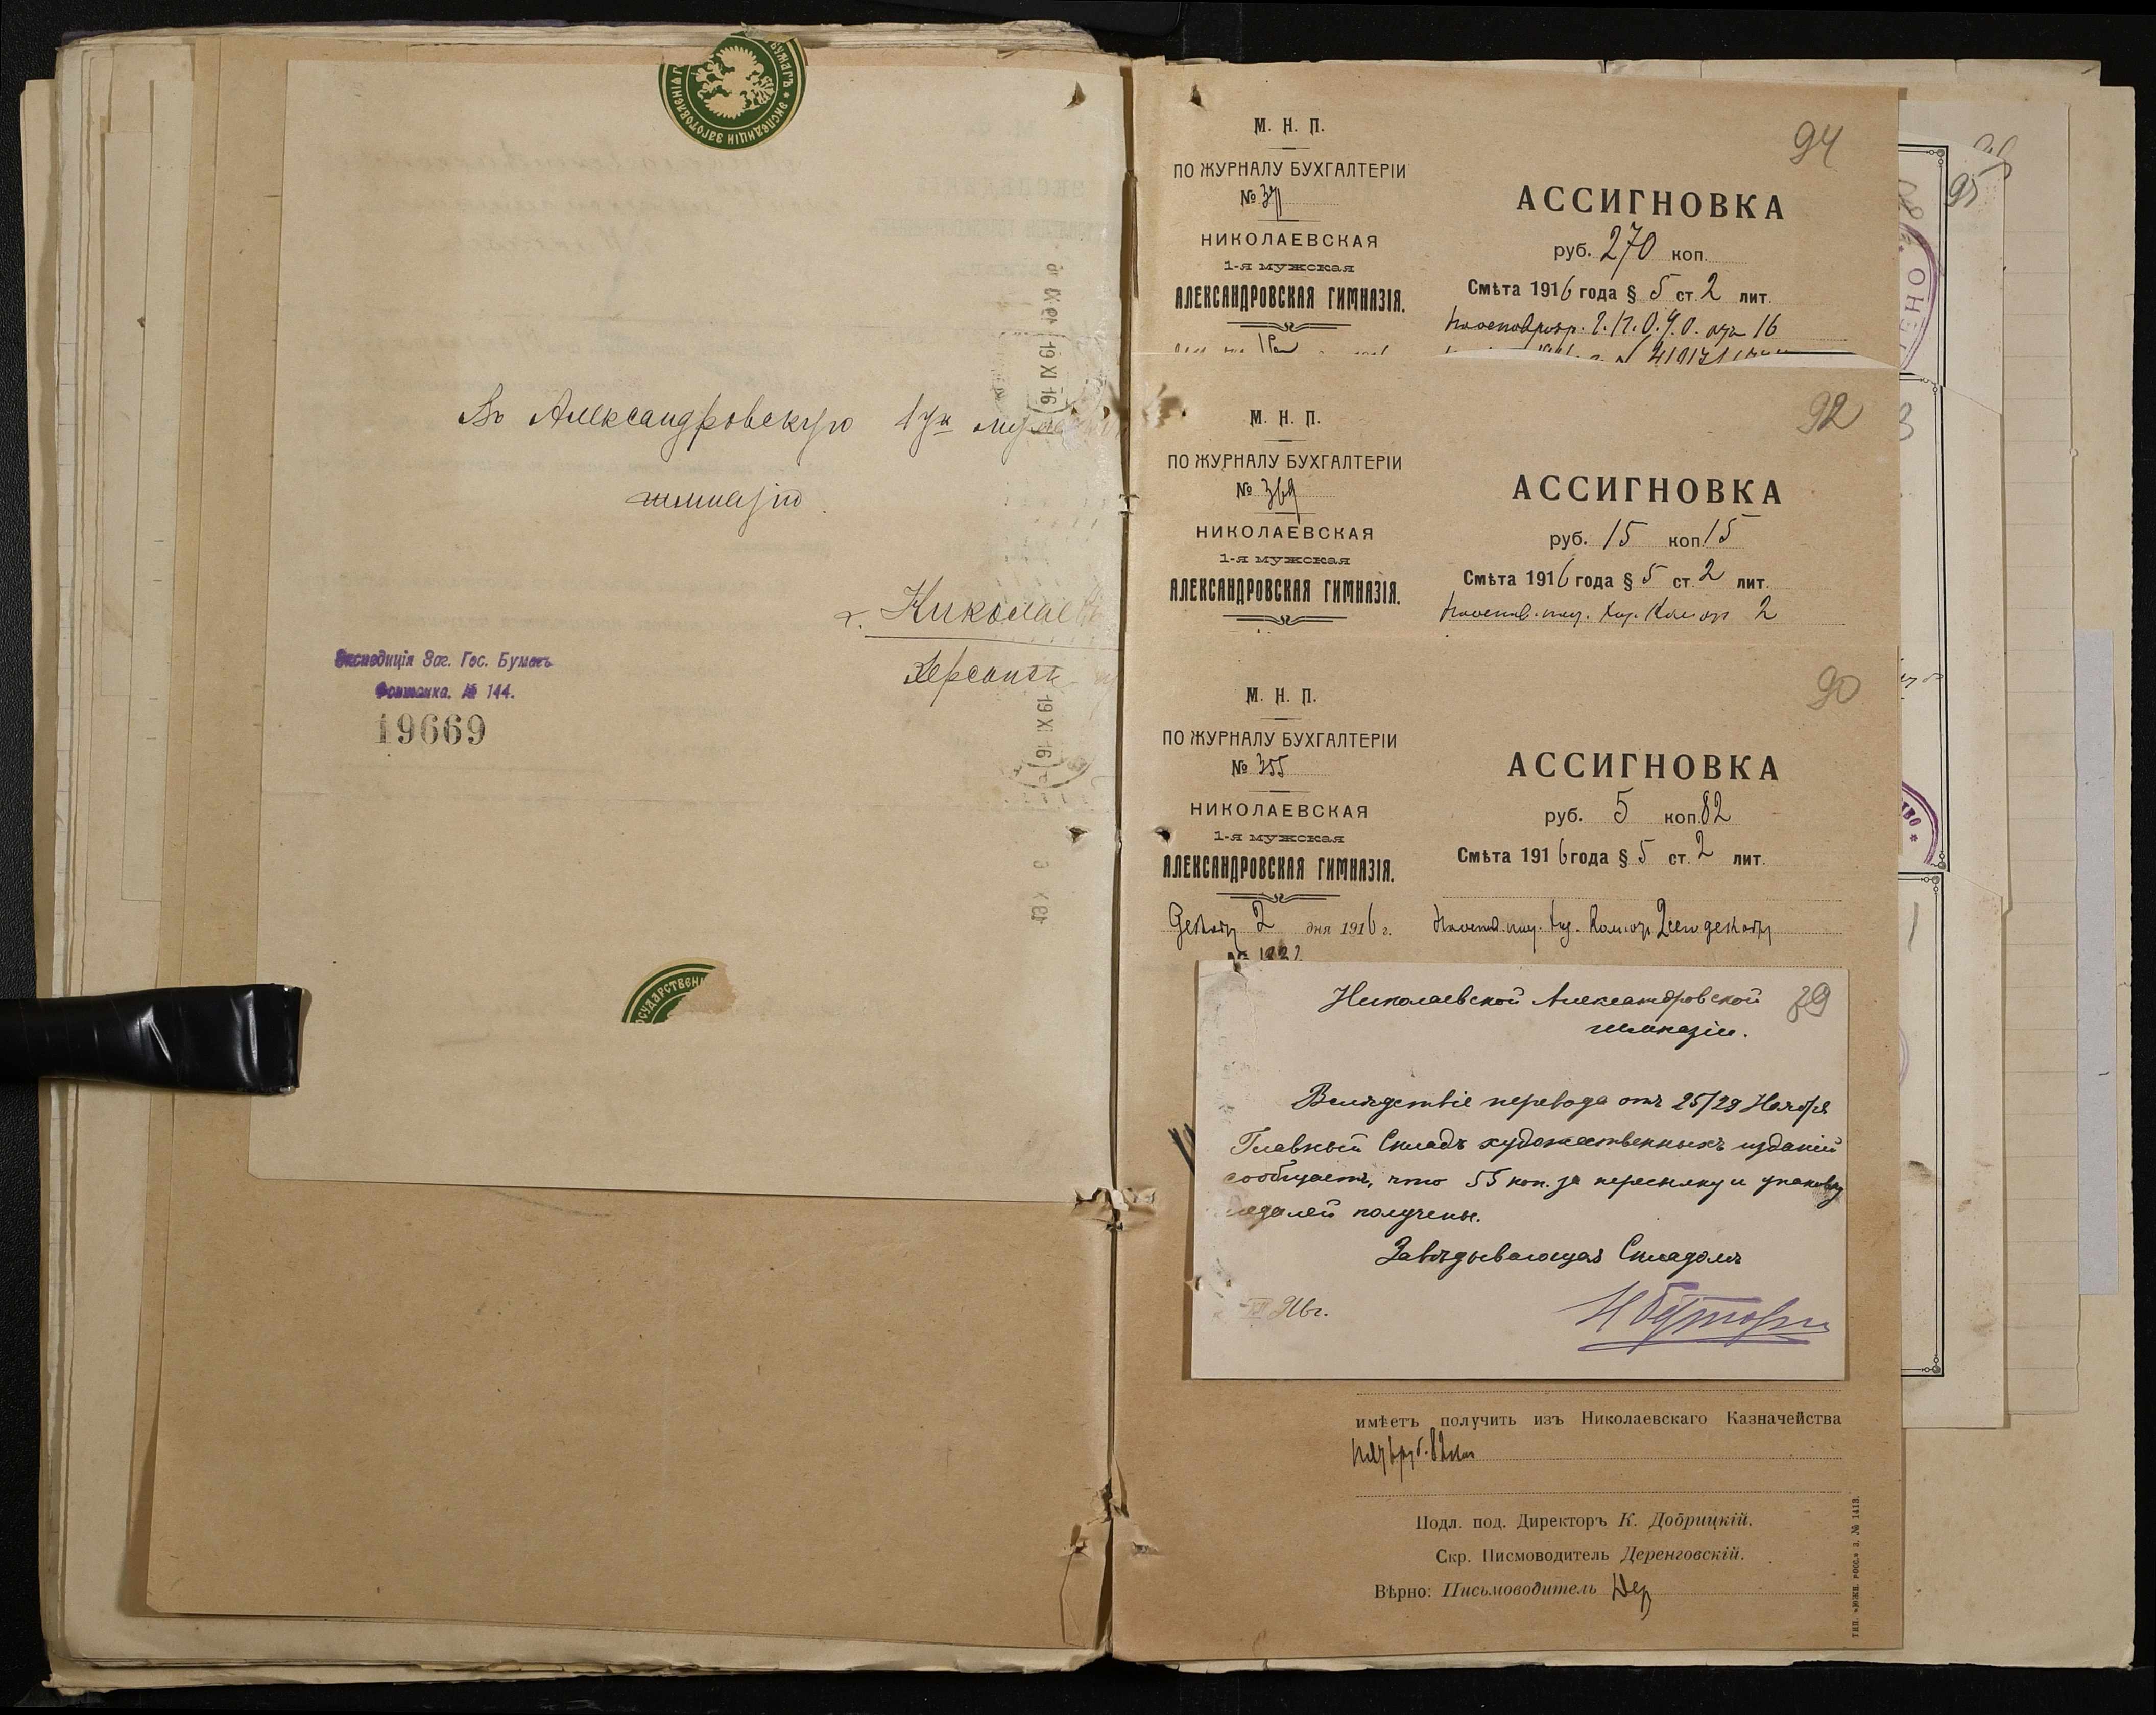 БУМАГЪ * ЭКСПЕДИЦІИ ЗАГОТОВЛЕНІЯ
19 XI 16
Въ Александровскую 1ую
гимназію.
г. Николаев
Херсонск
Экспедиція Заг. Гос. Бумагъ
Фонтанка, № 144.
19669
19 XI 16
ГОСУДАРСТВЕН
94
М. Н. П.
ПО ЖУРНАЛУ БУХГАЛТЕРІИ
№ 371
НИКОЛАЕВСКАЯ
1-я мужская
АЛЕКСАНДРОВСКАЯ ГИМНАЗІЯ.
АССИГНОВКА
руб. 270 коп.
Смѣта 1916 года § 5 ст. 2 лит.
95
92
М. Н. П.
ПО ЖУРНАЛУ БУХГАЛТЕРІИ
№ 369
НИКОЛАЕВСКАЯ
1-я мужская
АЛЕКСАНДРОВСКАЯ ГИМНАЗІЯ.
АССИГНОВКА
руб. 15 коп. 15
Смѣта 1916 года § 5 ст. 2 лит.
90
М. Н. П.
ПО ЖУРНАЛУ БУХГАЛТЕРІИ
№ 355
НИКОЛАЕВСКАЯ
1-я мужская
АЛЕКСАНДРОВСКАЯ ГИМНАЗІЯ.
Декабр 2 дня 1916 г.
АССИГНОВКА
руб. 5 коп. 82
Смѣта 1916 года § 5 ст. 2 лит.
89
Николаевской Александровской
гимназіи.
Вслѣдствіе перевода отъ 25/28 Ноября
Главный Складъ художественныхъ изданій
сообщаетъ, что 55 коп. за пересылку и упаковку
медалей получены.
Завѣдывающая Складомъ
16 г.
имѣетъ получить изъ Николаевскаго Казначейства
пять руб. 82 коп
Подл. под. Директоръ К. Добрицкій.
Скр. Писмоводитель Деренговскій.
Вѣрно: Письмоводитель Дер
ТИП. «ЮЖН. РОСС.» З. № 1413.